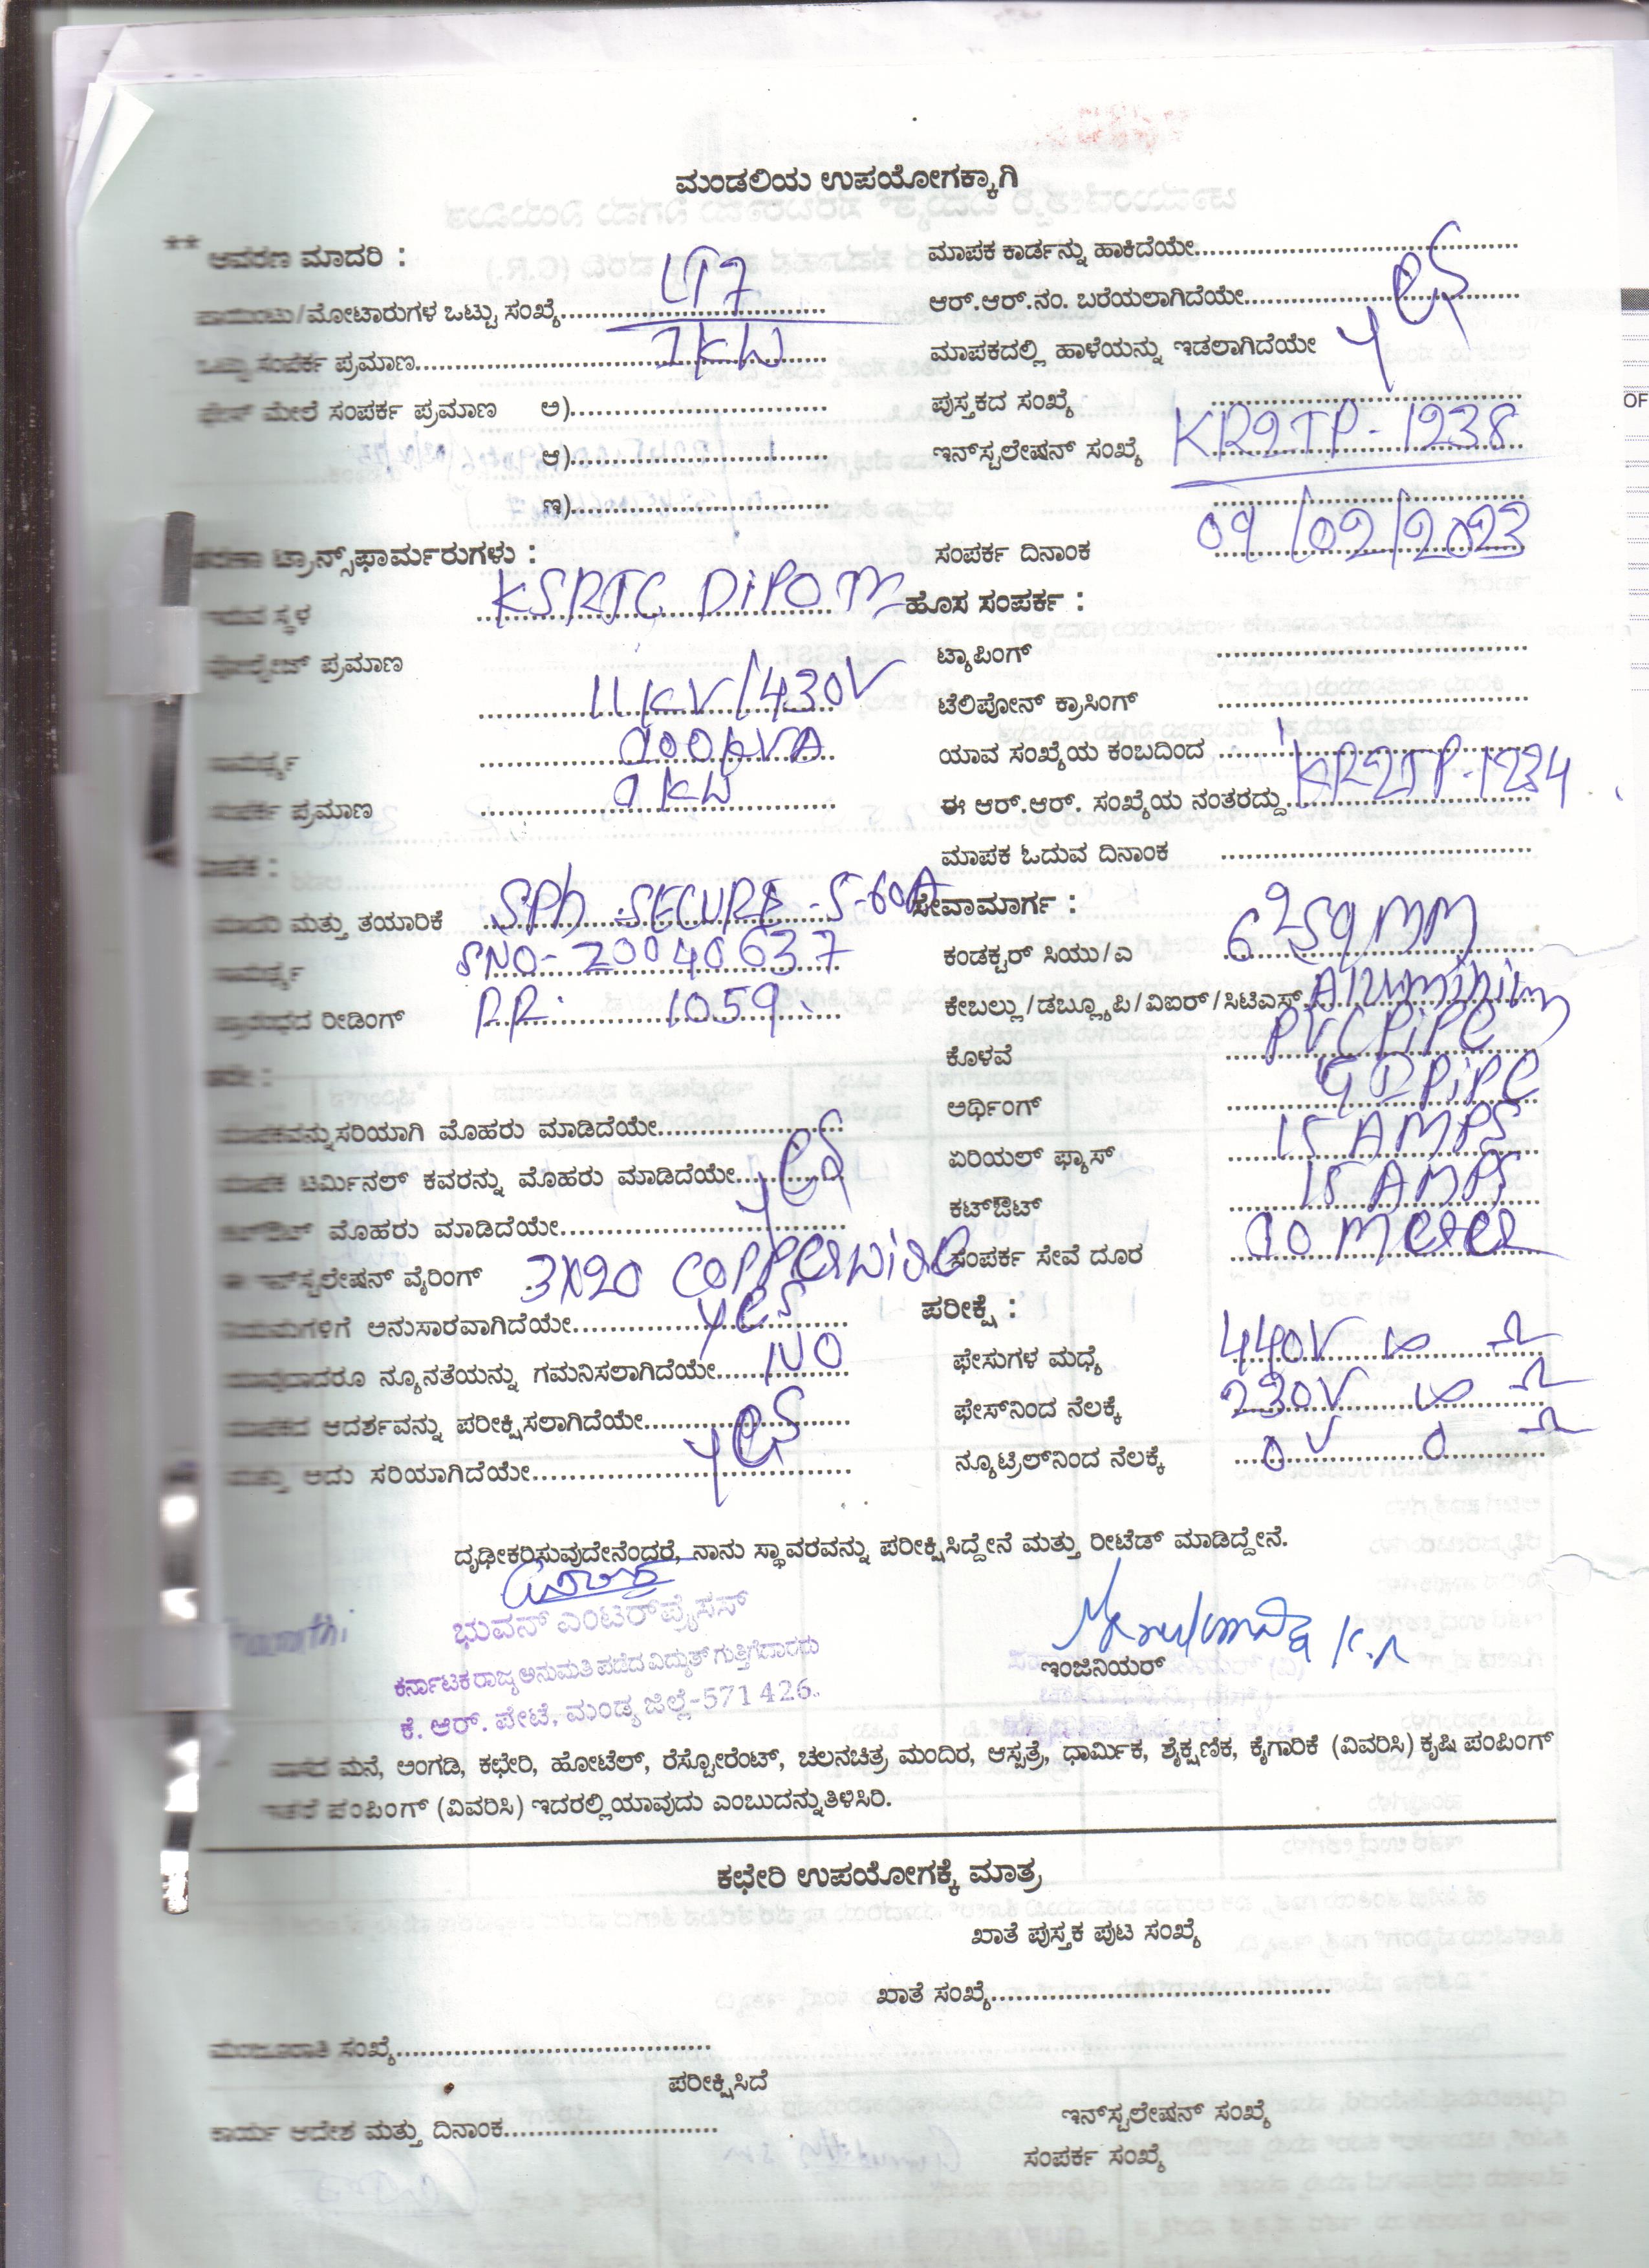 ಮಂಡಲಿಯ ಉಪಯೋಗಕ್ಕಾಗಿ
** ಆವರಣ ಮಾದರಿ :
LT7
ಪಾಯಿಂಟು/ಮೋಟಾರುಗಳ ಒಟ್ಟು ಸಂಖ್ಯೆ
ಒಟ್ಟು ಸಂಪರ್ಕ ಪ್ರಮಾಣ 1KW
ಫೇಸ್ ಮೇಲೆ ಸಂಪರ್ಕ ಪ್ರಮಾಣ ಅ)
ಆ)
ಣ)
ಟ್ರಾನ್ಸ್‌ಫಾರ್ಮರುಗಳು :
ಇರುವ ಸ್ಥಳ KSRTC DIPO TC
ವೋಲ್ಟೇಜ್ ಪ್ರಮಾಣ
11KV/430V
ಸಾಮರ್ಥ್ಯ 100KVA
ಸಂಪರ್ಕ ಪ್ರಮಾಣ 1KW
ಮಾಪಕ :
ಮಾದರಿ ಮತ್ತು ತಯಾರಿಕೆ SPh SECURE -5-60A
ಸಾಮರ್ಥ್ಯ SNO- 20040637
ಪ್ರಾರಂಭದ ರೀಡಿಂಗ್ RR: 1059
ಮಾಪಕವನ್ನು ಸರಿಯಾಗಿ ಮೊಹರು ಮಾಡಿದೆಯೇ
ಮಾಪಕ ಟರ್ಮಿನಲ್ ಕವರನ್ನು ಮೊಹರು ಮಾಡಿದೆಯೇ yes
ಕಟ್‌ಔಟ್ ಮೊಹರು ಮಾಡಿದೆಯೇ
ಈ ಇನ್‌ಸ್ಟಲೇಷನ್ ವೈರಿಂಗ್ 3X20 COPPER WIRE
ನಿಯಮಗಳಿಗೆ ಅನುಸಾರವಾಗಿದೆಯೇ yes
ಯಾವುದಾದರೂ ನ್ಯೂನತೆಯನ್ನು ಗಮನಿಸಲಾಗಿದೆಯೇ NO
ಮಾಪಕದ ಆದರ್ಶವನ್ನು ಪರೀಕ್ಷಿಸಲಾಗಿದೆಯೇ yes
ಮತ್ತು ಅದು ಸರಿಯಾಗಿದೆಯೇ
ಮಾಪಕ ಕಾರ್ಡನ್ನು ಹಾಕಿದೆಯೇ
ಆರ್.ಆರ್.ನಂ. ಬರೆಯಲಾಗಿದೆಯೇ yes
ಮಾಪಕದಲ್ಲಿ ಹಾಳೆಯನ್ನು ಇಡಲಾಗಿದೆಯೇ
ಪುಸ್ತಕದ ಸಂಖ್ಯೆ
ಇನ್‌ಸ್ಟಲೇಷನ್ ಸಂಖ್ಯೆ KR2TP-1238
ಸಂಪರ್ಕ ದಿನಾಂಕ 09/02/2023
ಹೊಸ ಸಂಪರ್ಕ :
ಟ್ಯಾಪಿಂಗ್
ಟೆಲಿಪೋನ್ ಕ್ರಾಸಿಂಗ್
ಯಾವ ಸಂಖ್ಯೆಯ ಕಂಬದಿಂದ
ಈ ಆರ್.ಆರ್. ಸಂಖ್ಯೆಯ ನಂತರದ್ದು KR2TP-1234
ಮಾಪಕ ಓದುವ ದಿನಾಂಕ
ಸೇವಾಮಾರ್ಗ :
ಕಂಡಕ್ಟರ್ ಸಿಯು/ಎ 6 sqmm
ಕೇಬಲ್ಲು/ಡಬ್ಲ್ಯೂಪಿ/ವಿಐರ್/ಸಿಟಿಎಸ್ Aluminium
ಕೊಳವೆ PVC PIPE
ಅರ್ಥಿಂಗ್ GI PIPE
ಏರಿಯಲ್ ಫ್ಯಾಸ್ 15 AMPS
ಕಟ್‌ಔಟ್ 15 AMPS
ಸಂಪರ್ಕ ಸೇವೆ ದೂರ 10 meter
ಪರೀಕ್ಷೆ :
ಫೇಸುಗಳ ಮಧ್ಯೆ 440V ∞ Ω
ಫೇಸ್‌ನಿಂದ ನೆಲಕ್ಕೆ 230V ∞ Ω
ನ್ಯೂಟ್ರಿಲ್‌ನಿಂದ ನೆಲಕ್ಕೆ 0 V 0 Ω
ದೃಢೀಕರಿಸುವುದೇನೆಂದರೆ, ನಾನು ಸ್ಥಾವರವನ್ನು ಪರೀಕ್ಷಿಸಿದ್ದೇನೆ ಮತ್ತು ರೀಟೆಡ್ ಮಾಡಿದ್ದೇನೆ.
ಭುವನ್ ಎಂಟರ್‌ಪ್ರೈಸಸ್
ಕರ್ನಾಟಕ ರಾಜ್ಯ ಅನುಮತಿ ಪಡೆದ ವಿದ್ಯುತ್ ಗುತ್ತಿಗೆದಾರರು
ಕೆ. ಆರ್. ಪೇಟೆ, ಮಂಡ್ಯ ಜಿಲ್ಲೆ-571 426.
ಇಂಜಿನಿಯರ್
ವಾಸದ ಮನೆ, ಅಂಗಡಿ, ಕಛೇರಿ, ಹೋಟೆಲ್, ರೆಸ್ಟೋರೆಂಟ್, ಚಲನಚಿತ್ರ ಮಂದಿರ, ಆಸ್ಪತ್ರೆ, ಧಾರ್ಮಿಕ, ಶೈಕ್ಷಣಿಕ, ಕೈಗಾರಿಕೆ (ವಿವರಿಸಿ) ಕೃಷಿ ಪಂಪಿಂಗ್
ಇತರೆ ಪಂಪಿಂಗ್ (ವಿವರಿಸಿ) ಇದರಲ್ಲಿ ಯಾವುದು ಎಂಬುದನ್ನು ತಿಳಿಸಿರಿ.
ಕಛೇರಿ ಉಪಯೋಗಕ್ಕೆ ಮಾತ್ರ
ಖಾತೆ ಪುಸ್ತಕ ಪುಟ ಸಂಖ್ಯೆ
ಖಾತೆ ಸಂಖ್ಯೆ
ಮಂಜೂರಾತಿ ಸಂಖ್ಯೆ
ಪರೀಕ್ಷಿಸಿದೆ
ಕಾರ್ಯ ಆದೇಶ ಮತ್ತು ದಿನಾಂಕ
ಇನ್‌ಸ್ಟಲೇಷನ್ ಸಂಖ್ಯೆ
ಸಂಪರ್ಕ ಸಂಖ್ಯೆ
OF